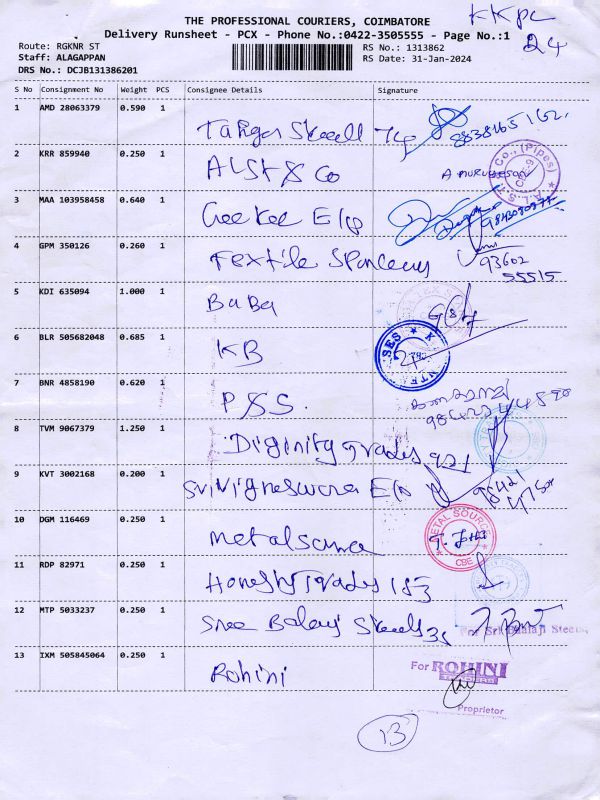 THE PROFESSIONAL COURIERS, COIMBATORE
KKPC
24
Delivery Runsheet - PCX - Phone No.:0422-3505555 - Page No.:1
Route: RGKNR ST
RS No.: 1313862
Staff: ALAGAPPAN
RS Date: 31-Jan-2024
DRS No.: DCJB131386201
S No Consignment No Weight PCS Consignee Details Signature
1 AMD 28063379 0.590 1
2 KRR 859940 0.250 1 ALST & Co
Co., (Pipes)
3 MAA 103958458 0.640 1 Geekee E/p
4 GPM 350126 0.260 1 Textile
93602
55515
5 KDI 635094 1.000 1 Baba
6 BLR 505682048 0.685 1 KB
7 BNR 4858190 0.620 1 PSS
8 TVM 9067379 1.250 1 Diginity Trades 921
9 KVT 3002168 0.200 1 Srivigneswara E/p
10 DGM 116469 0.250 1 Metalsource
METAL SOURCE
CBE
11 RDP 82971 0.250 1 Honesty Trades 183
12 MTP 5033237 0.250 1 Sree Balaji Steels 35
For Sri Balaji Steels
13 IXM 505845064 0.250 1 Rohini
For ROHINI
Proprietor
13